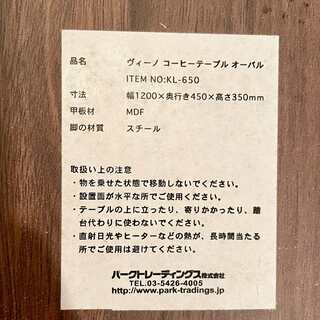 品名 ヴィーノ コーヒーテーブル オーバル
ITEM NO:KL-650
寸法 幅1200×奥行き450×高さ350mm
甲板材 MDF
脚の材質 スチール
取扱い上の注意
・物を乗せた状態で移動しないでください。
・設置面が水平な所でご使用ください。
・テーブルの上に立ったり、寄りかかったり、踏
台代わりに使わないでください。
・直射日光やヒーターなどの熱が、長時間当たる
所でご使用は避けてください。
パークトレーディングス株式会社
TEL.03-5426-4005
http://www.park-tradings.jp